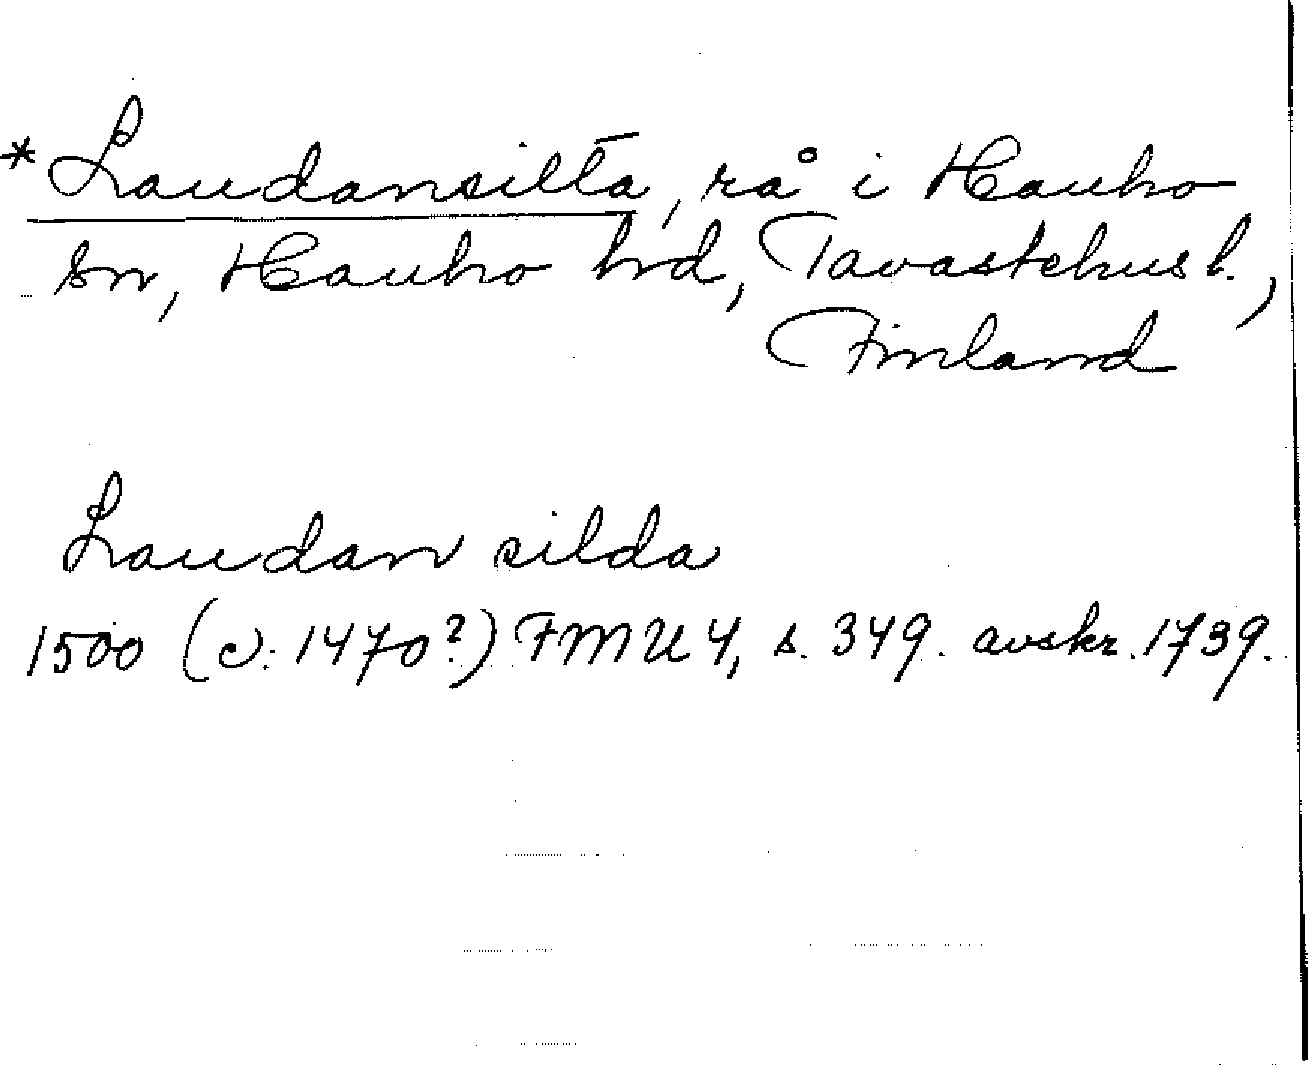 *Laudansilta, rå i Hauho
sn, Hauho hd, Tavastehus l.,
Finland
Laudan silda
1500 (c. 1470?) FMU 4, s. 349. avskr. 1739.